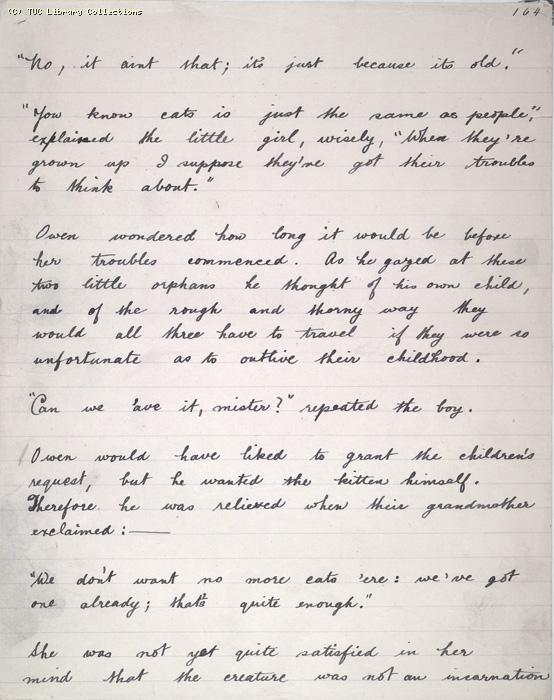 (C) TUC Library Collections
164
"No, it aint that; it's just because its old."
"You know cats is just the same as people",
explained the little girl, wisely, "When they're
grown up I suppose they've got their troubles
to think about."
Owen wondered how long it would be before
her troubles commenced. As he gazed at these
two little orphans he thought of his own child,
and of the rough and thorny way they
would all three have to travel if they were so
unfortunate as to outlive their childhood.
"Can we 'ave it, mister?" repeated the boy.
Owen would have liked to grant the children's
request, but he wanted the kitten himself.
Therefore he was relieved when their grandmother
exclaimed:—
"We don't want no more cats 'ere: we've got
one already; that's quite enough."
She was not yet quite satisfied in her
mind that the creature was not an incarnation